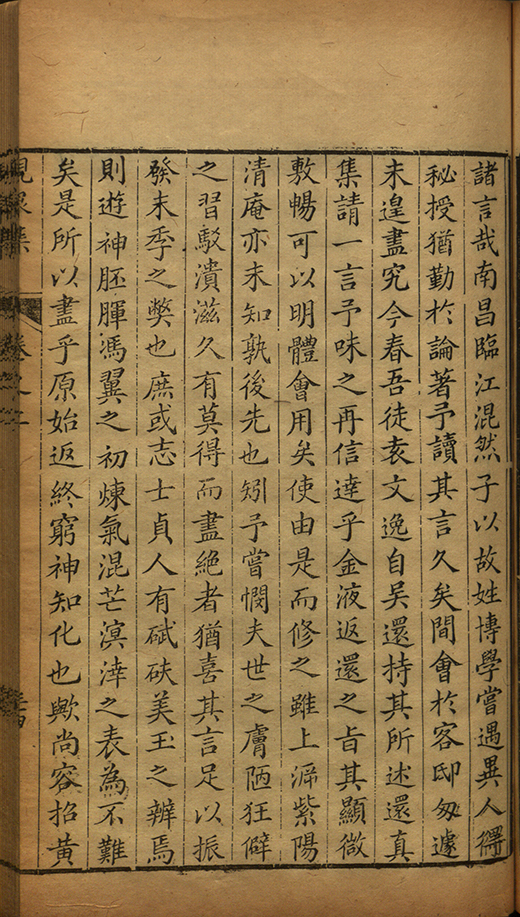 諸言哉南昌臨江混然子以故姓博學嘗遇異人得
秘授猶勤於論著予讀其言久矣間會於客邸匆遽
未遑盡究今春吾徒袁文逸自吴還持其所述還真
集請一言予味之再信達乎金液返還之㫖其顯微
敷暢可以明體會用矣使由是而修之雖上泝紫陽
清庵亦未知孰後先也矧予嘗憫夫世之膚陋狂僻
之習駁潰滋久有莫得而盡絶者猶喜其言足以振
發末季之獘也庶或志士貞人有碔砆美玉之辨焉
則遊神胚腪馮翼之初煉氣混芒溟涬之表為不難
矣是所以盡乎原始返終窮神知化也歟尚容招黄
峴泉集
卷之二